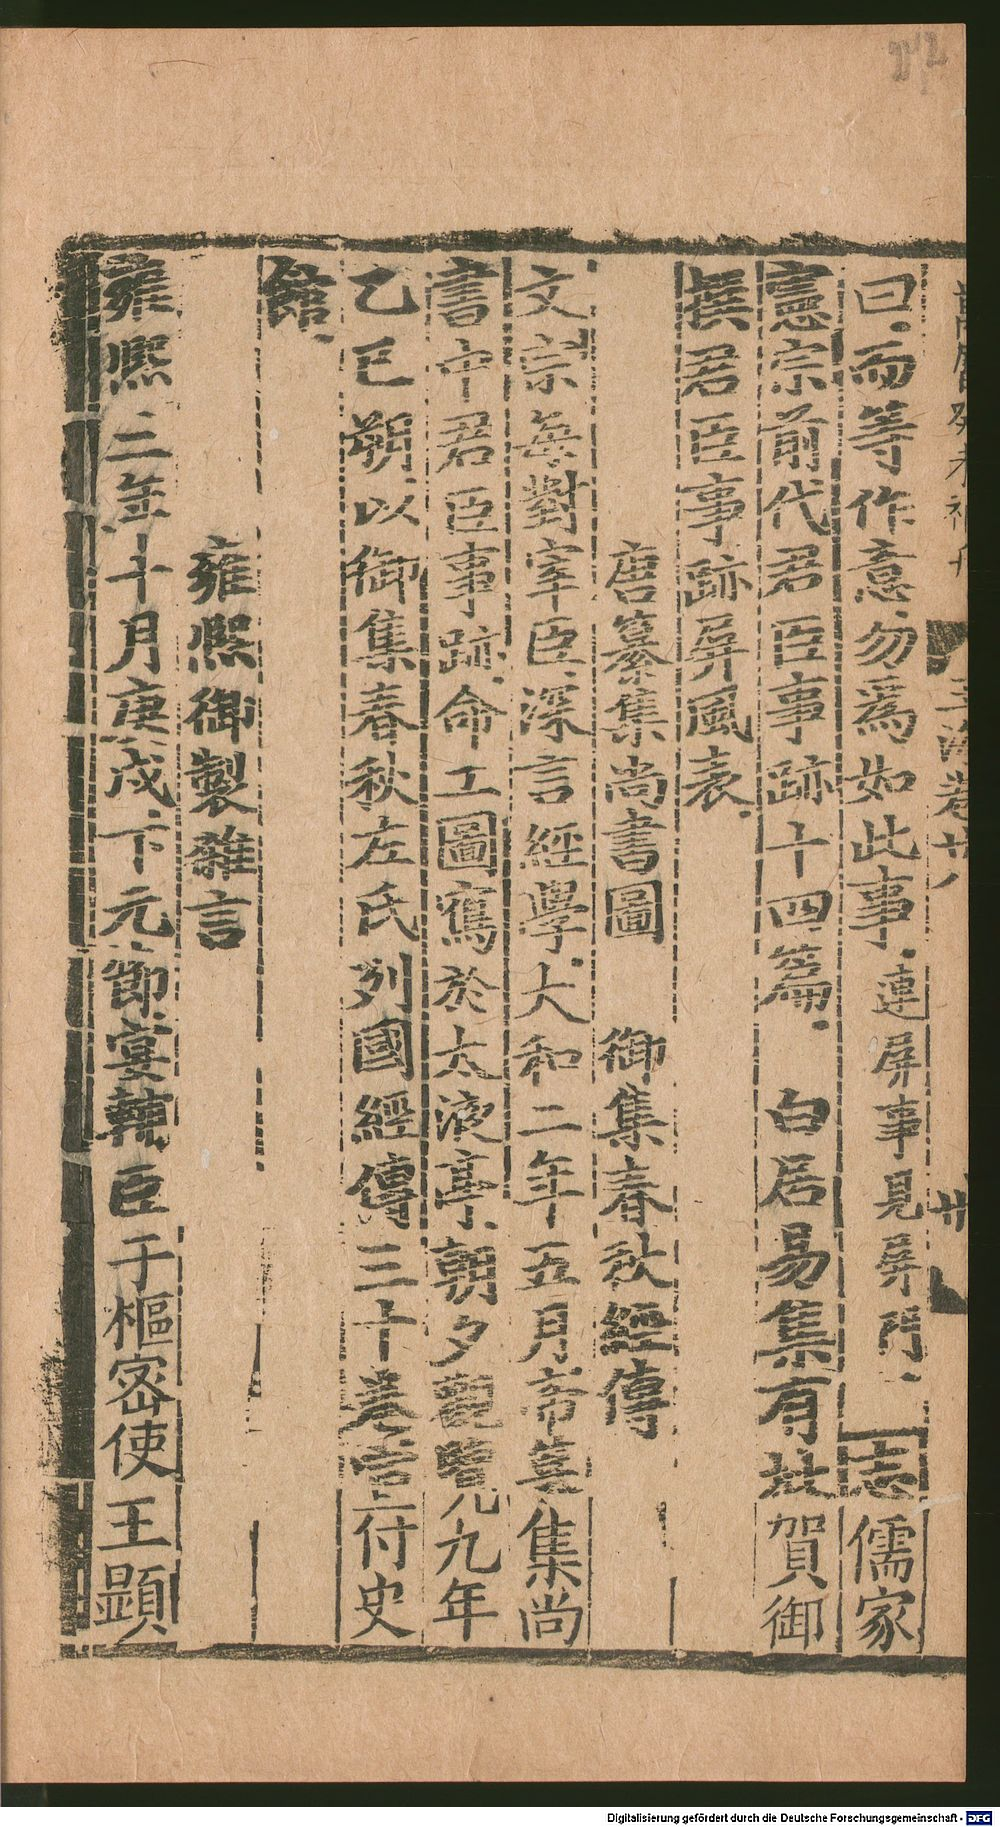 曰而等作意勿爲如此事連屏事見屏門志儒家
憲宗前代君臣事跡十四篇 白居易集有批賀御
撰君臣事跡屏風表
唐纂集尚書圖 御集春秋經傳
文宗每對宰臣深言經學大和二年五月帝纂集尚
書中君臣事跡命工圖寫於太液亭朝夕觀覽九年
乙巳朔以御集春秋左氏列國經傳三十卷宣付史
館
雍熙御製雜言
雍熙二年十月庚戌下元節宴輔臣于樞密使王顯
Digitalisierung gefördert durch die Deutsche Forschungsgemeinschaft - DFG